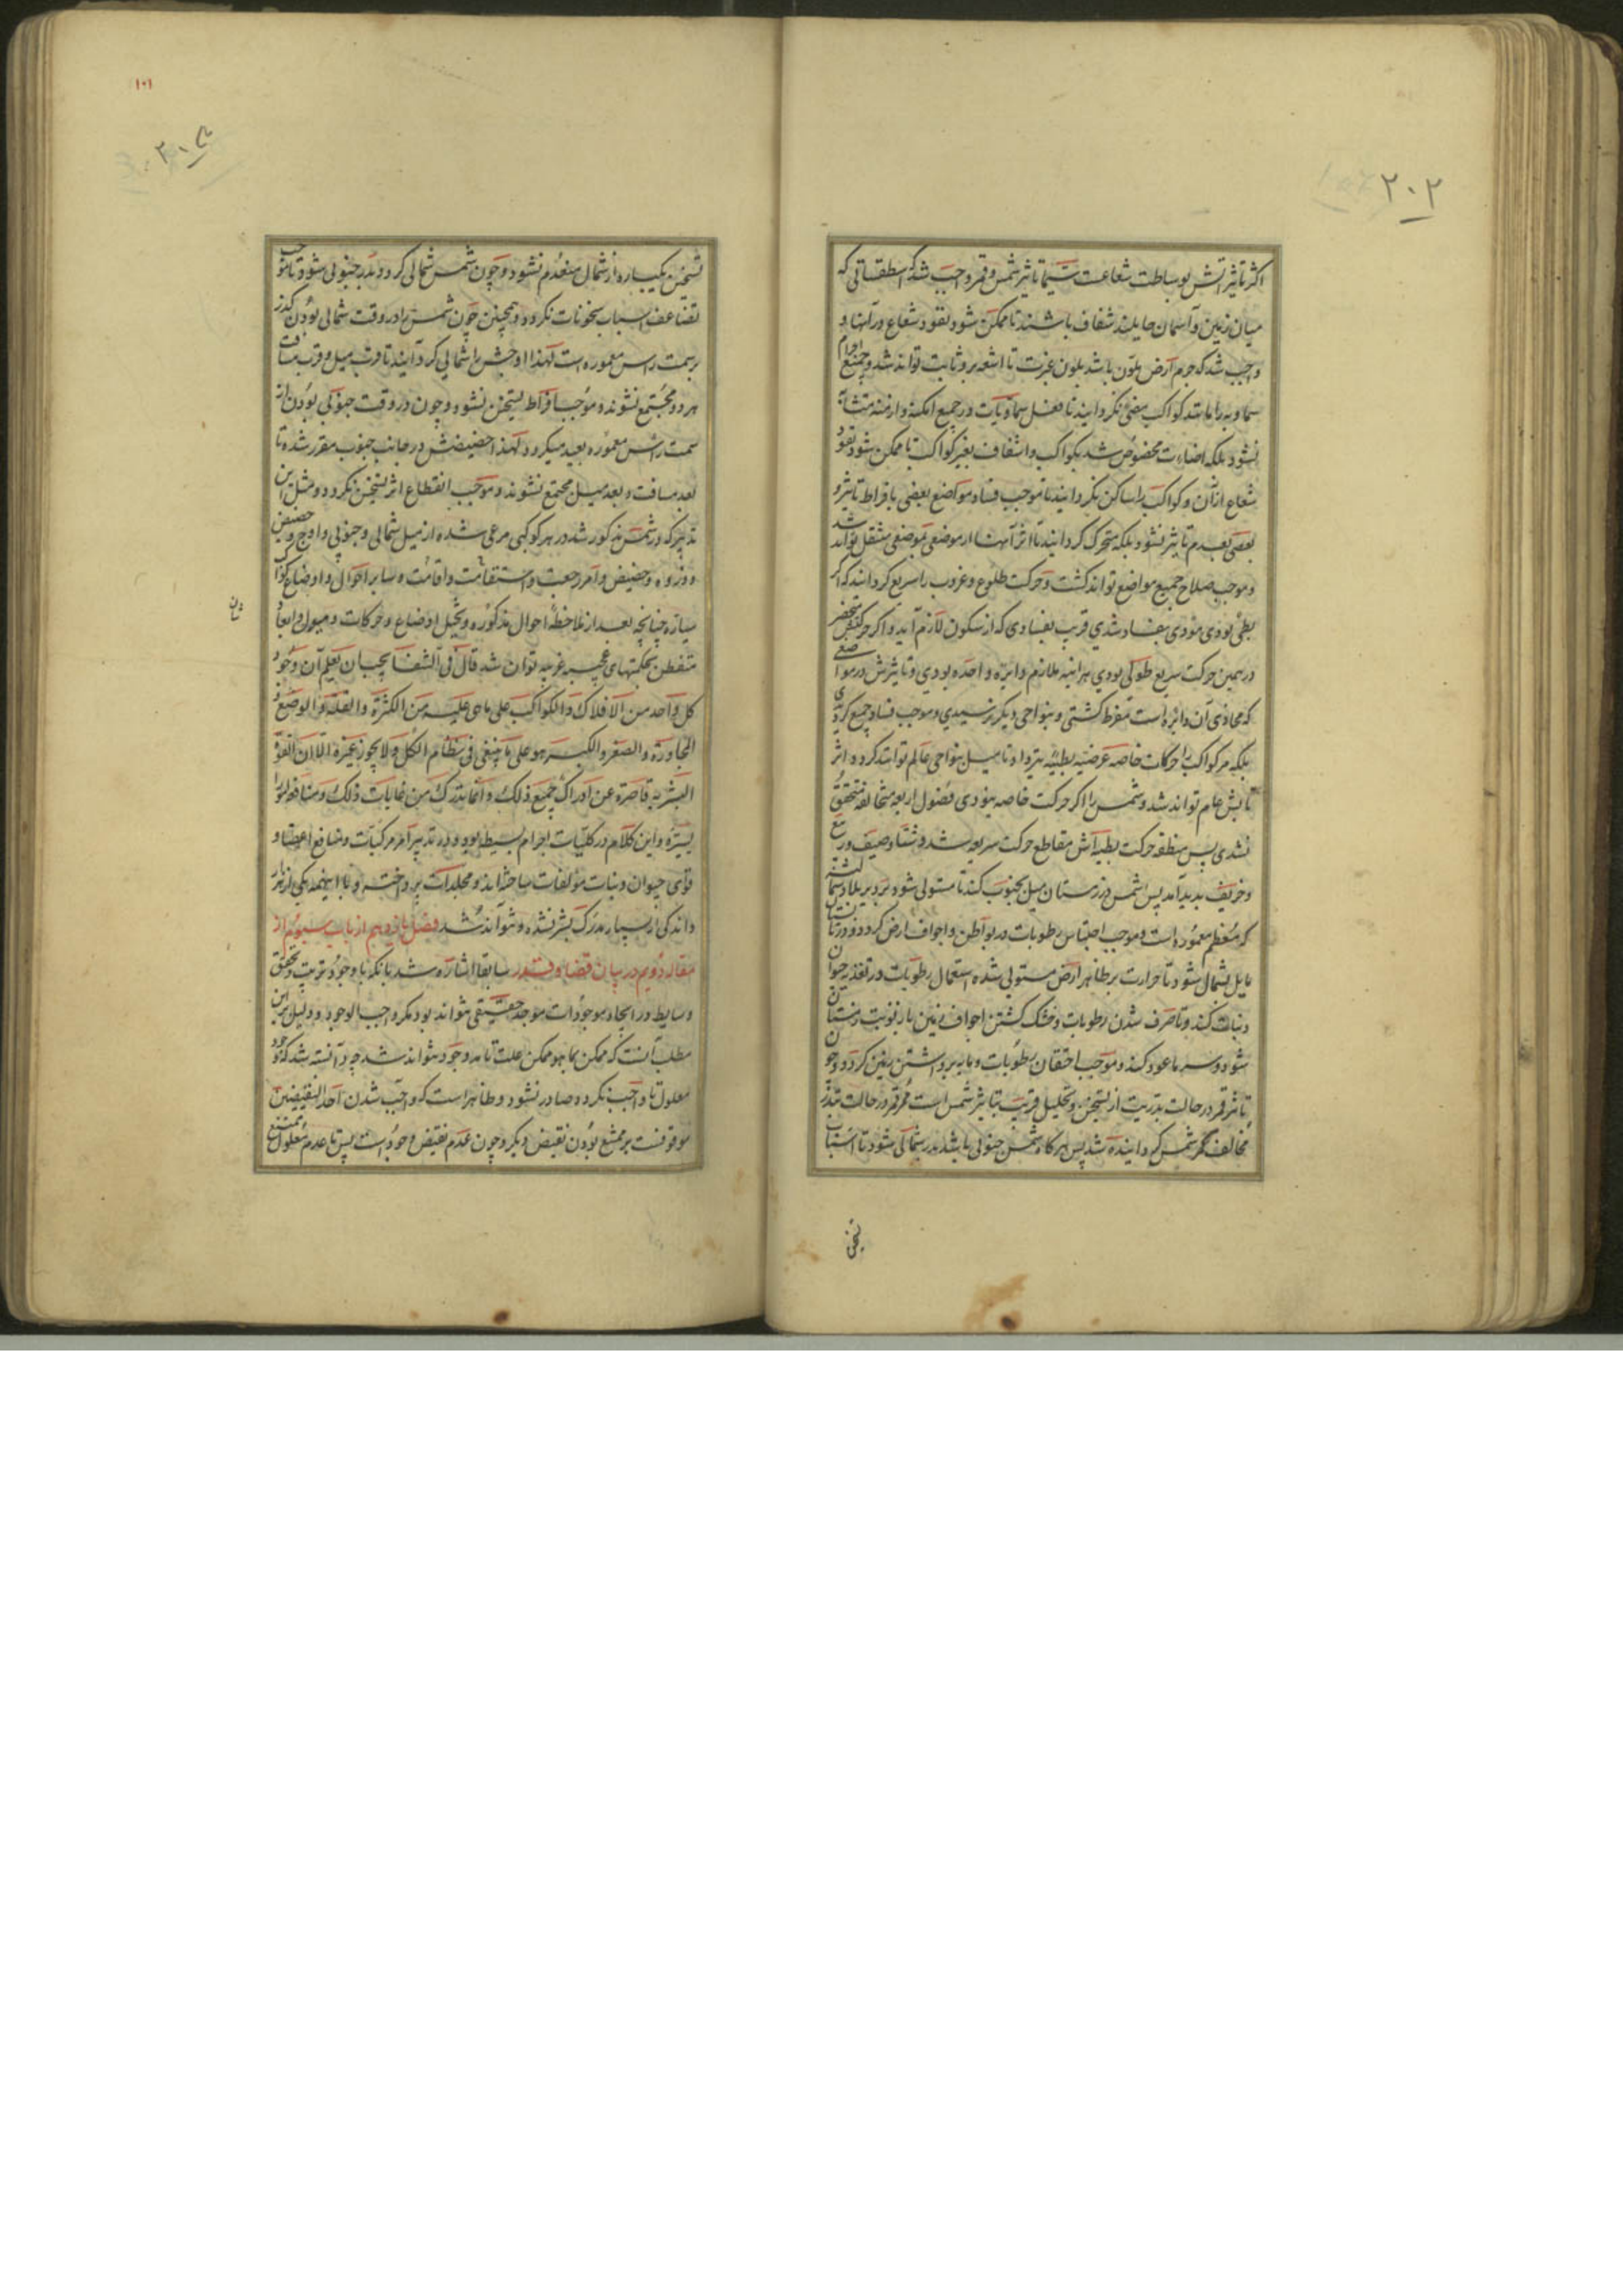 ۲۰۲
اکثر تأثیراتش بوساطت شعاعست سیما تأثیر شمس و قمر واجب شد که اسطقساتی که
میان زمین و آسمان حایلند شفاف باشند تا ممکن شود نفوذ شعاع در آنها و
واجب شد که جرم ارض ملون باشد بلون غبرت تا اشعه برو ثابت تواند شد و جمیع اجرام
سماویه را مانند کواکب مضی نگردانیدند تا فعل سماویات در جمیع امکنه و ازمنه متشابه
نشود بلکه اضاءت مخصوص شد بکواکب و اشفاف بغیر کواکب تا ممکن شود نفوذ
شعاع از آن و کواکب را ساکن نگردانیدند تا موجب فساد مواضع بعضی بافراط تأثیر و
بعضی بعدم تأثیر نشود بلکه متحرک گردانیدند تا اثر آنها از موضعی بموضعی منتقل تواند شد
و موجب صلاح جمیع مواضع تواند گشت و حرکت طلوع و غروب را سریع گردانیدند که اگر
بطئ بودی مؤدی بفساد شدی قریب بفسادی که از سکون لازم آید و اگر حرکتش منحصر
در همین حرکت سریع طولی بودی هرآینه ملازم دایره واحده بودی و تأثیرش در مواضعی
که محاذی آن دایره است مفرط گشتی و بنواحی دیگر نرسیدی و موجب فساد جمیع گردیدی
بلکه مر کواکب را حرکات خاصه عرضیه بطیئه نیز داد تا میل بنواحی عالم توانند کرد و اثر
تابش عام تواند شد و شمس را اگر حرکت خاصه نبودی فصول اربعه متخالفه متحقق
نشدی پس منطقه حرکت بطیئه‌اش مقاطع حرکت سریعه شد و شتا و صیف و ربیع
و خریف پدید آمد پس شمس در زمستان میل بجنوب کند تا مستولی شود برد بر بلاد شما
که معظم معموره است و موجب احتباس رطوبات در بواطن و اجواف ارض گردد و در تابستان
مایل بشمال شود تا حرارت بر ظاهر ارض مستولی شده استعمال رطوبات در تغذیه حیوان
و نبات کند و تا صرف شدن رطوبات و خشک گشتن اجواف زمین باز نوبت زمستان
شود و سرما عود کند و موجب احتقان رطوبات و مایه برداشتن زمین گردد و چون
تأثیر قمر در حالت بدریت از تسخین و تحلیل قریب بتأثیر شمس است ممر قمر در حالت تبدر
مخالف ممر شمس گردانیده شد پس هرگاه شمس جنوبی باشد بدر شمالی شود تا اسباب
تسخین
۱۰۱
تسخین یکباره از شمال منعدم نشود و چون شمس شمالی گردد بدر جنوبی شود تا موجب
تضاعف اسباب سخونات نگردد و همچنین چون شمس را در وقت شمالی بودن گذر
بر سمت راس معموره است لهذا اوجش را شمالی گردانیدند تا قرب میل و قرب مسافت
هر دو مجتمع نشوند و موجب افراط تسخین نشود و چون در وقت جنوبی بودن از
سمت راس معموره بعید میگردد لهذا حضیضش در جانب جنوب مقرر شده تا
بعد مسافت و بعد میل مجتمع نشوند و موجب انقطاع اثر تسخین نگردد و مثل این
تدبیر که در شمس مذکور شد در هر کوکبی مرعی شده از میل شمالی و جنوبی و اوج و حضیض
و ذروه و حضیض و امر رجعت و استقامت و اقامت و سایر احوال و اوضاع کواکب
سیاره چنانچه بعد از ملاحظه احوال مذکوره و تخیل اوضاع و حرکات و میول و ابعاد
متفطن بحکمتهای عجیبه غریبه توان شد قال فی الشفا یجب ان یعلم ان وجود
کل واحد من الافلاک و الکواکب علی ما هی علیه من الکثرة و القلة و الوضع و
المجاورة و الصغر و الکبر هو علی ما ینبغی فی نظام الکل و لا یجوز غیره الا ان القوة
البشریه قاصرة عن ادراک جمیع ذلک و انما یدرک من غایات ذلک و منافعه امورا
یسیرة و این کلام در کلیات اجرام بسیطه بود و در تدبیر امر مرکبات و منافع اعضا و
قوای حیوان و نبات مؤلفات ساخته‌اند و مجلدات پرداخته و با اینهمه یکی از هزار
و اندکی از بسیار مدرک بشر نشده و نتواند شد فصل یازدهم از باب سیوم از
مقاله دویم در بیان قضا و قدر سابقا اشاره شد بآنکه با وجود ترتیب و تحقق
وسایط در ایجاد موجودات موجد حقیقی نتواند بود مگر واجب الوجود و دلیل بر این
مطلب آنست که ممکن بما هو ممکن علت تامه وجود نتواند شد چه دانسته شد که وجود
معلول تا واجب نگردد صادر نشود و ظاهر است که واجب شدن احد النقیضین
موقوفست بر ممتنع بودن نقیض دیگر و چون عدم نقیض وجود است پس تا عدم معلول ممتنع